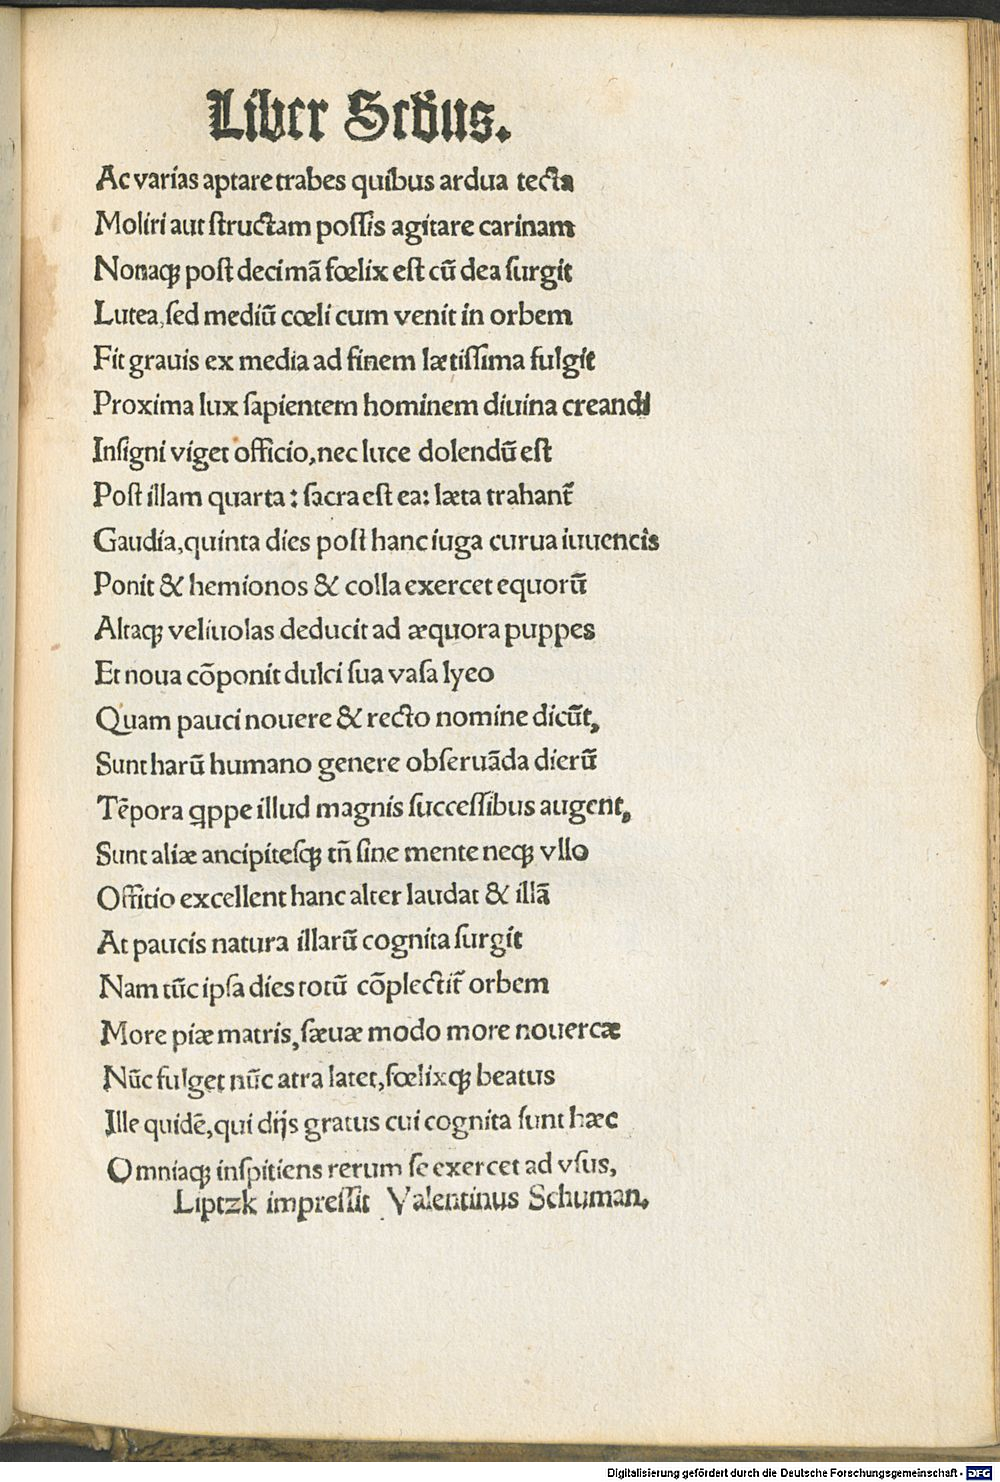 Liber Scd̄us.
Ac varias aptare trabes quibus ardua tecta
Moliri aut ſtructam poſſis agitare carinam
Nonaqꝫ poſt decimã fœlix eſt cũ dea ſurgit
Lutea, ſed mediũ cœli cum venit in orbem
Fit grauis ex media ad finem lætiſſima fulgit
Proxima lux ſapientem hominem diuina creandi
Inſigni viget officio, nec luce dolendũ eſt
Poſt illam quarta: ſacra eſt ea: læta trahant᷑
Gaudia, quinta dies poſt hanc iuga curua iuuencis
Ponit & hemionos & colla exercet equorũ
Altaqꝫ veliuolas deducit ad æquora puppes
Et noua cõponit dulci ſua vaſa lyeo
Quam pauci nouere & recto nomine dicũt,
Sunt harũ humano genere obſeruãda dierũ
Tẽpora ꝗppe illud magnis ſucceſſibus augent,
Sunt aliæ ancipiteſqꝫ tñ ſine mente neqꝫ vllo
Offitio excellent hanc alter laudat & illã
At paucis natura illarũ cognita ſurgit
Nam tũc ipſa dies totũ cõplectit᷑ orbem
More piæ matris, ſæuæ modo more nouercæ
Nũc fulget nũc atra latet, fœlixqꝫ beatus
Ille quidẽ, qui dijs gratus cui cognita ſunt hæc
Omniaqꝫ inſpitiens rerum ſe exercet ad vſus,
Liptzk impreſſit Valentinus Schuman.
Digitalisierung gefördert durch die Deutsche Forschungsgemeinschaft - DFG